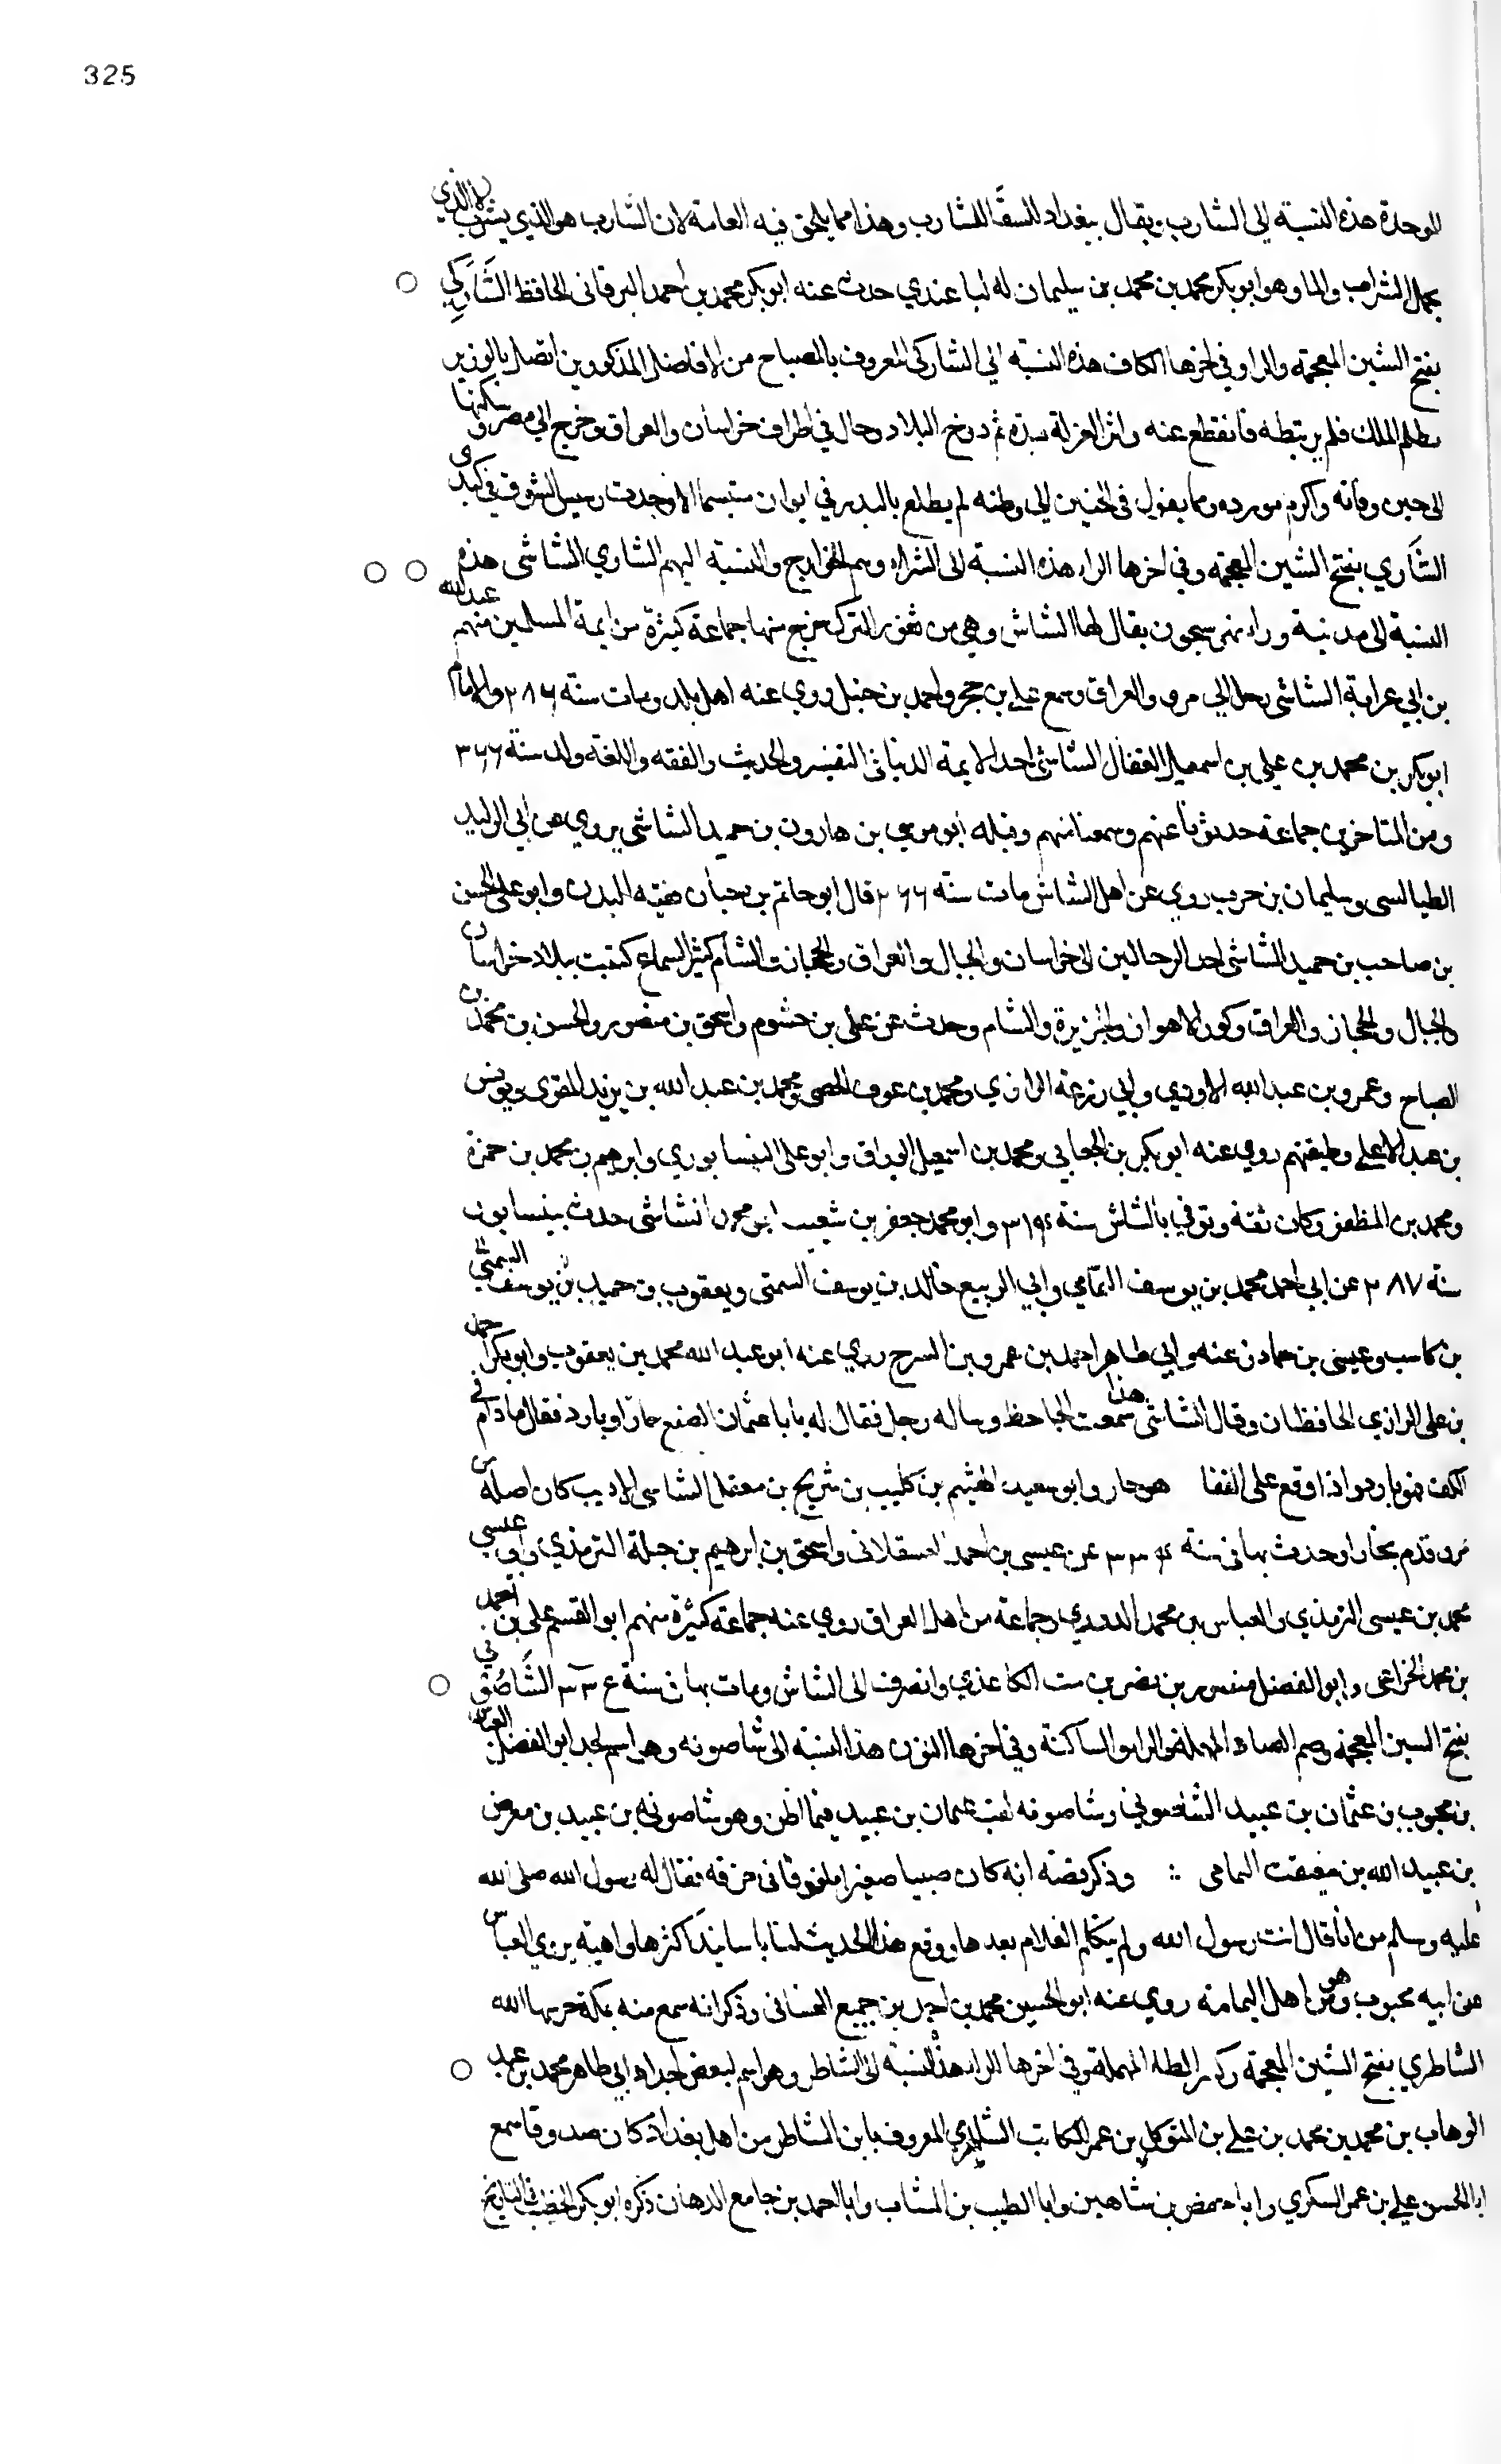 325
الموحدة هذه النسبة الى الشارب يقال ببغداد للسقا الشارب وهذا مما يلحق فيه العامة لان الشارب هو الذي يشرب لا الذي
يحمل الشراب والما وهو ابو بكر محمد بن محمد بن سليمان له لبا عندي حدث عنه ابو بكر محمد بن احمد البرقانى الحافظ الشَّارَكي
بفتح الشين المعجمة والرا وفي اخرها الكاف هذه النسبة الي الشاركى المعروف بالمصباح من الافاضل المذكورين اتصل بالوزير
نظام الملك فلم يرتبطه فانقطع عنه واثر العزلة مدة ثم دوخ البلاد وجال في اطراف خراسان والعراق وخرج الي مصر وسكنها
الى حين وفاته واكرم مورده ومما يقول فى الحنين الي وطنه لم يطلع بالبدر في ايوان مبتسما الا وجدت رسيس الشوق في كبدى
الشَاري بفتح الشين المعجمة وفي اخرها الراء هذه النسبة الى الشراه وهم الخوارج والنسبة اليهم الشاري الشاشى هذه
النسبة الى مدينة وراء نهر سيحون يقال لها الشاش وهي من ثغور الترك خرج منها جماعة كثيرة من ايمة المسلمين منهم عبد الله
بن ابي عرابة الشاشى رحل الي مرو والعراق وسمع علي بن حجر واحمد بن حنبل روي عنه اهل بلده ومات سنة ٢٨٦ والامام
ابو بكر بن محمد بن علي بن اسمعيل القفال الشاشى احد الايمة الدنيا في التفسير والحديث والفقه واللغة ولد سنة ٣٦٦
ومن المتاخرين جماعة حدثونا عنهم وسمعنا منهم وقبله ابو موسى بن هارون بن حميد الشاشى يروي عن ابي الوليد
الطيالسى وسليمان بن حرب روي عن اهل الشاش مات سنة ٢٦٦ قال ابو حاتم بن حبان فقيه البدن وابو علي الحسن
بن صاحب بن حميد الشاشى احد الرحالين الى خراسان والجبال والعراق والحجاز والشام كثير السماع كتبت ببلاد خراسان
والجبال والحجاز والعراق وكور الاهواز والجزيرة والشام وحدث عن علي بن خشوم واسحق بن منصور والحسن بن محمد بن
الصباح وعمرو بن عبد الله الاودي وابي زرعة الرازي ومحمد بن عوف الحمصي ومحمد بن عبد الله بن يزيد المقري ويونس
بن عبد الاعلي وطبقتهم روي عنه ابو بكر بن الجعابي ومحمد بن اسمعيل الوراق وابو على النيسابوري وابرهيم بن محمد بن حمزة
ومحمد بن المظفر وكان ثقة وتوفي بالشاش سنة ٣١٤ وابو محمد جعفر بن شعيب ابو محمد الشاشى حدث بنيسابور
سنة ٢٨٧ عن ابي احمد محمد بن يوسف وابي الربيع خالد بن يوسف السمتى ويعقوب بن حميد بن يوسف السمتي
بن كاسب وعيسى بن حماد بن عنه وابي طاهر احمد بن عمرو بن السرح روي عنه ابو عبد الله محمد بن يعقوب وابو بكر احمد
بن على الرازي الحافظان وقال الشاشى هذا سمعت الجاحظ وساله رجل فقال له يابا عثمان الصفع حار او بارد فقال ما دام في
الكف فهو بارد واذا وقع على القفا هو حار وابو سعيد الهيثم بن كليب بن شريح بن معقل الشاشى الاديب كان اصله من
مرو قدم بخارا وحدث بها فى سنة ٣٣٤ عن عيسى بن احمد العسقلانى واسحق بن ابرهيم بن جبلة الترمذي وابي عيسي
محمد بن عيسى الترمذي والعباس بن محمد الدوري وجماعة من اهل العراق روي عنه جماعة كثيرة منهم ابو القسم على بن احمد
بن محمد الخزاعى وابو الفضل منصور بن نصر بن مت الكاغذي وانصرف الى الشاش ومات بها فى سنة الشَّاصُوني
بفتح الشين المعجمة وضم الصاد المهملة والواو الساكنة وفي اخرها النون هذه النسبة الى شاصونه وهو اسم لجد ابو الفضل العباس
بن محبوب بن عثمان بن عبيد الشاصوني وشاصونه لقب عثمان بن عبيد فيما اظن وهو شاصونه بن عبيد بن معرض
بن عبيد الله بن معيقت اليمامى وذكر قصة انه كان صبيا صغيرا ملفوفا فى خرقة فقال له رسول الله صلى الله
عليه وسلم من انا قال انت رسول الله ولم يتكلم الغلام بعدها ووقع هذا الحديث لنا باسانيد اكثرها واهية يروي العباس
عن ابيه محبوب وهو من اهل اليمامة روي عنه ابو الحسين محمد بن احمد بن جميع الغسانى وذكر انه سمع منه بمكة حرسها الله
الشاطري بفتح الشين المعجمة وكسر الطاء المهملة وفي اخرها الراء هذه النسبة الى الشاطر وهو اسم لبعض اجداد ابي طاهر محمد بن عبد
الوهاب بن محمد بن محمد بن علي بن المتوكل بن عمر الكاتب الشاطري المعروف بابن الشاطر من اهل بغداد كان صدوقا سمع
ابا الحسن علي بن عمر السكري وابا حفص بن شاهين وابا الطيب بن المنتاب وابا احمد بن جامع الدهان ذكره ابو بكر الخطيب في التاريخ